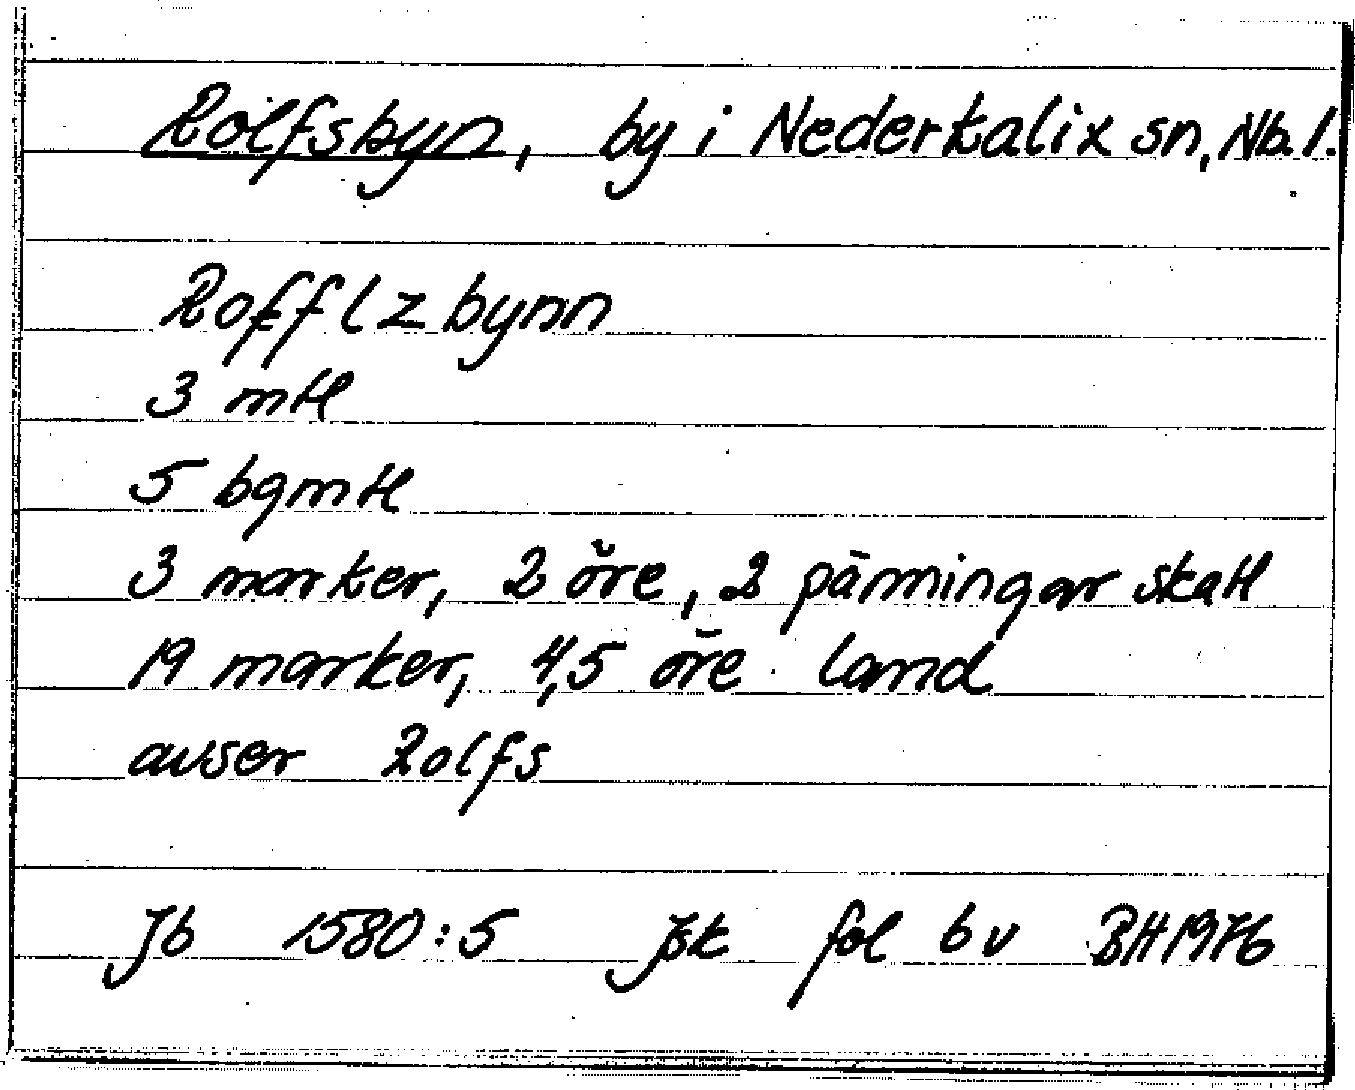 Rolfsbyn, by i Nederkalix sn, Nb. l.
Rofflzbynn
3 mtl
5 bgmtl
3 marker, 2 öre, 2 pänningar skatt
19 marker, 4,5 öre land
avser Rolfs
Jb 1580:5 fol 6 v BH1976